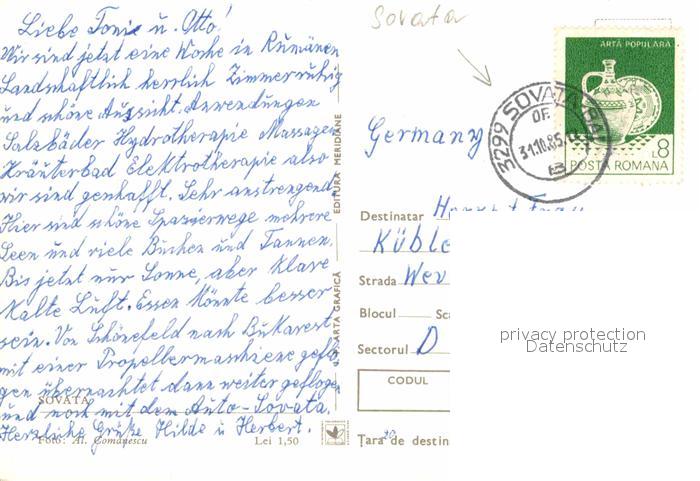 Liebe Toni u. Otto!
Wir sind jetzt eine Woche in Rumänen
Landschaftlich herrlich Zimmer ruhig
und schöne Aussicht. Anwendungen
Salzbäder Hydrotherapie Massagen
Kräuterbad Elektrotherapie also
wir sind geschafft. Sehr anstrengend.
Hier sind schöne Spazierwege mehrere
Seen und viele Buchen und Tannen.
Bis jetzt nur Sonne, aber klare
kalte Luft. Essen könnte besser
sein. Von Schönefeld nach Bukarest
mit einer Propellermaschiene geflo
gen übernachtet dann weiter geflogen
und noch mit dem Auto-Sovata.
Herzliche Grüße Hilde u. Herbert.
SOVATA
Foto: Al. Comănescu
Lei 1,50
EDITURA MERIDIANE
ARTA GRAFICĂ
Sovata
ARTĂ POPULARĂ
L8
POSTA ROMANA
3299 SOVATA
OF.
31.10.85
Germany
Destinatar
Küble
Strada Wev
Blocul
Sca
Sectorul D
CODUL
Țara de destin
privacy protection
Datenschutz